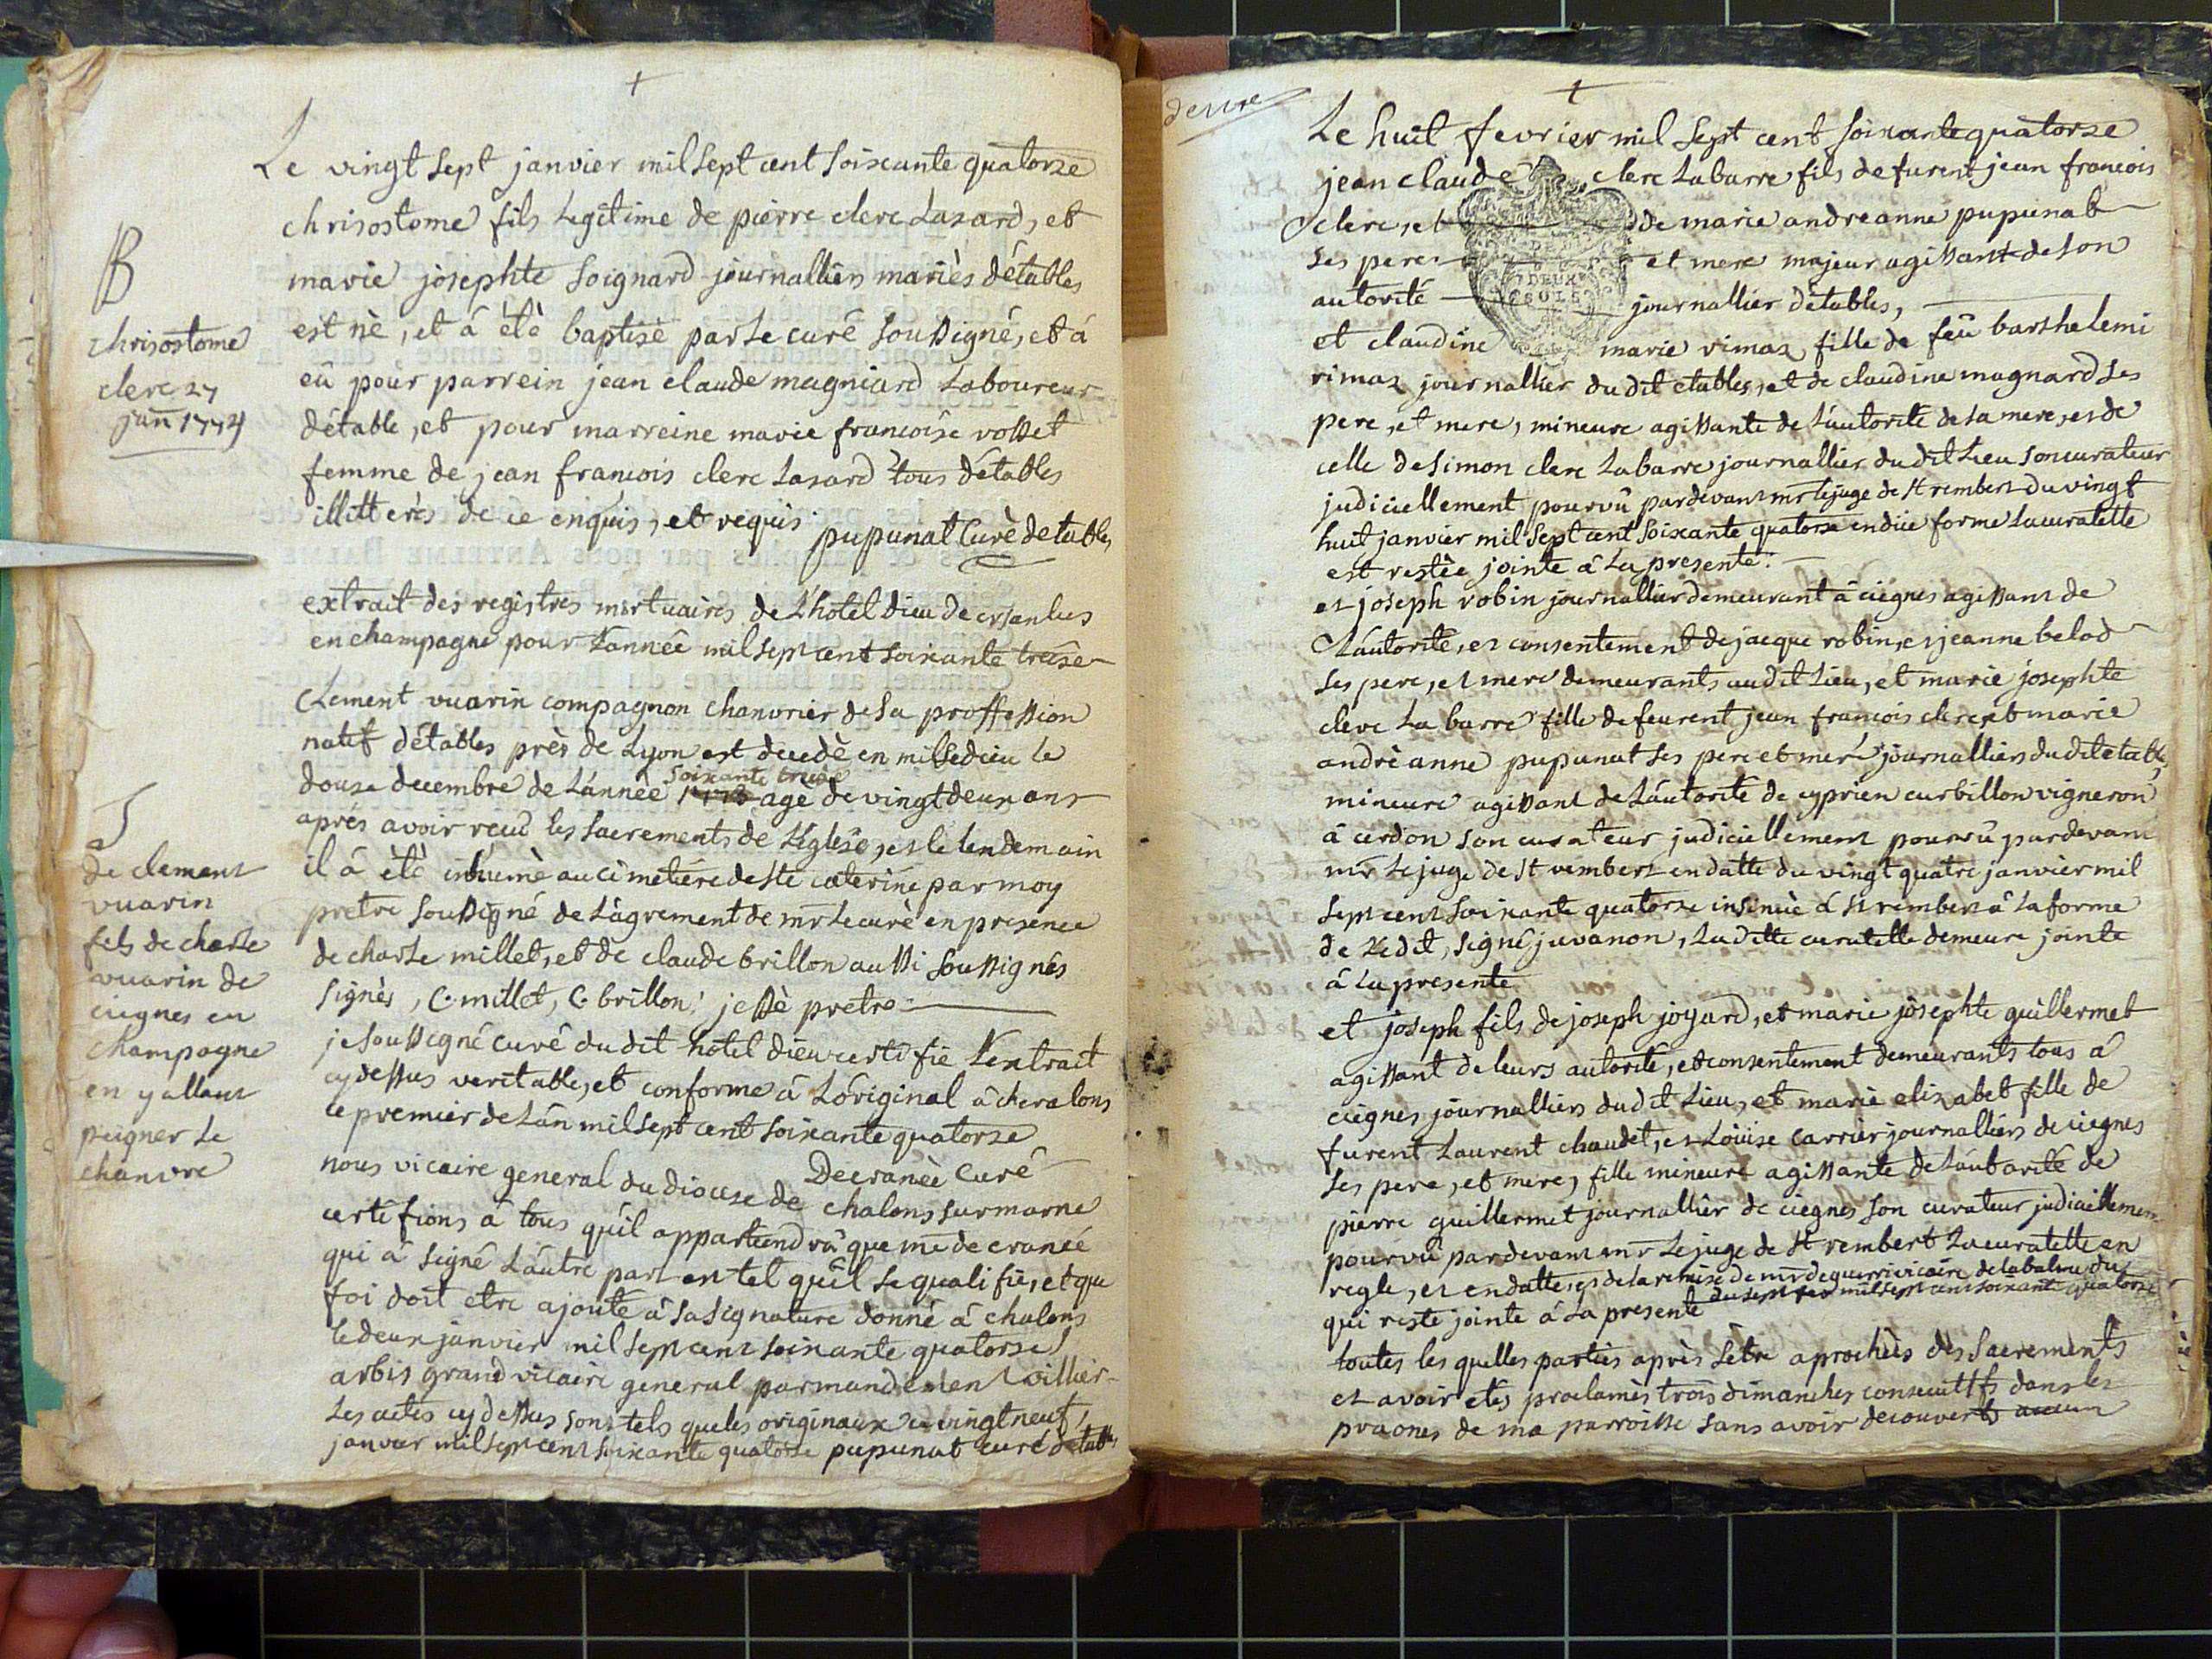 +
Le vingt sept janvier mil sept cent soixante quatorze
chrisostome fils legitime de pierre clerc Lazard, et
marie josephte soignard journalliers mariès détables
est nè, et â étè baptisè par le curé soussigné, et á
eû pour parrein jean claude magniard Laboureur
détable, et pour marreine marie francoise vosset
femme de jean francois clerc Lazard tous détables
illitterès de ce enquis, et requis. pupunat Curè detables
B
chrisostome
clerc 27
jan 1774
extrait des registres mortuaires de L'hotel dieu de
en champagne pour L'annèe mil sept cent soixante treise
Clement vuarin compagnon chanvrier de sa proffession
natif détables près de Lyon est decedè en mil le
douse decembre de L'annèe soixante treise agè de vingt deux ans
aprés avoir reçu les sacrements de L'eglise, et le lendemain
il â étè inhumè au cimetiére de ste caterine par moy
pretre soussigné de L'àgrement de mr le curè en presence
de charle millet, et de claude brillon aussi soussignés
signès, C. millet, C. brillon, jessè pretre
je soussigné curé du dit hotel dieu certifie L'extrait
cy dessus veritable, et conforme á L'original á chaalons
le premier de L'an mil sept cent soixante quatorze
Decranèe Curé
nous vicaire general du diocese de chalons sur marne
certifions á tous quîl appartiendrâ que mr de cranèe
qui â signé L'autre part est tel quîl se qualifie, et que
foi doit etre ajoutè â sa signature donné á chalons
le deux janvier mil sept cent soixante quatorse
arbis grand vicaire general par mandement villier
Les actes cy dessus sont tels que les originaux ce vingt neuf
janvier mil sept cent soixante quatorse pupunat curé détables
S
de clement
vuarin
fils de charle
vuarin de
ciegnes en
champagne
en y allant
peigner le
chanvre
+
Le huit fevrier mil sept cent soixante quatorze
jean claude clerc Labarre fils de furent jean francois
clerc, et de marie andreanne pupunat
ses pere et mere majeur agissant de son
autorité journallier détables,
DEUX
SOLS
et claudine marie rimaz fille de feû barthelemi
rimaz journallier du dit etables, et de claudine magnard ses
pere, et mere, mineure agissante de L'autorité de sa mere, et de
celle de simon clerc Labarre journallier du dit Lieu son curateur
judiciellement pourvû pardevant mr le juge de st rembert du vingt
huit janvier mil sept cent soixante quatorse en düe forme La curatelle
est restèe jointe â La presente.
et joseph robin journallier demeurant â ciegnes agissant de
L'autorité, et consentement de jacque robin, et jeanne belod
ses pere, et mere demeurants audit Lieu, et marie josephte
clerc La barre fille de feurent jean francois clerc et marie
andrè anne pupunat ses pere et mere journalliers du dit etables
mineure agissant de L'autorité de cyprien curbillon vigneron
â cerdon son curateur judiciellement pourvû pardevant
mr le juge de st rembert en datte du vingt quatre janvier mil
sept cent soixante quatorse insinuè á st rembert â la forme
de L'edit, signé juvanon, Laditte curatelle demeure jointe
á La presente
et joseph fils de joseph joyard, et marie josephte guillermet
agissant de leurs autorité, et consentement demeurants tous á
ciegnes journalliers du dit Lieu, et marie elizabet fille de
furent Laurent chaudet, et Loüise carrier journalliers de ciegnes
ses pere, et mere, fille mineure agissante de L'autorité de
pierre guillermet journallier de ciegnes son curateur judiciellement
pourvû pardevant mr Le juge de st rembert La curatelle en
regle, et en datte, et de la remise de mr deguerri vicaire de labalme du
du sept fev mil sept cent soixante quatorse
qui reste jointe á La presente
toutes les quelles parties après sètre aprochés des sacrements
et avoir etès proclamès trois dimanches consecutifs dans les
praones de ma parroisse sans avoir decouverts aucun